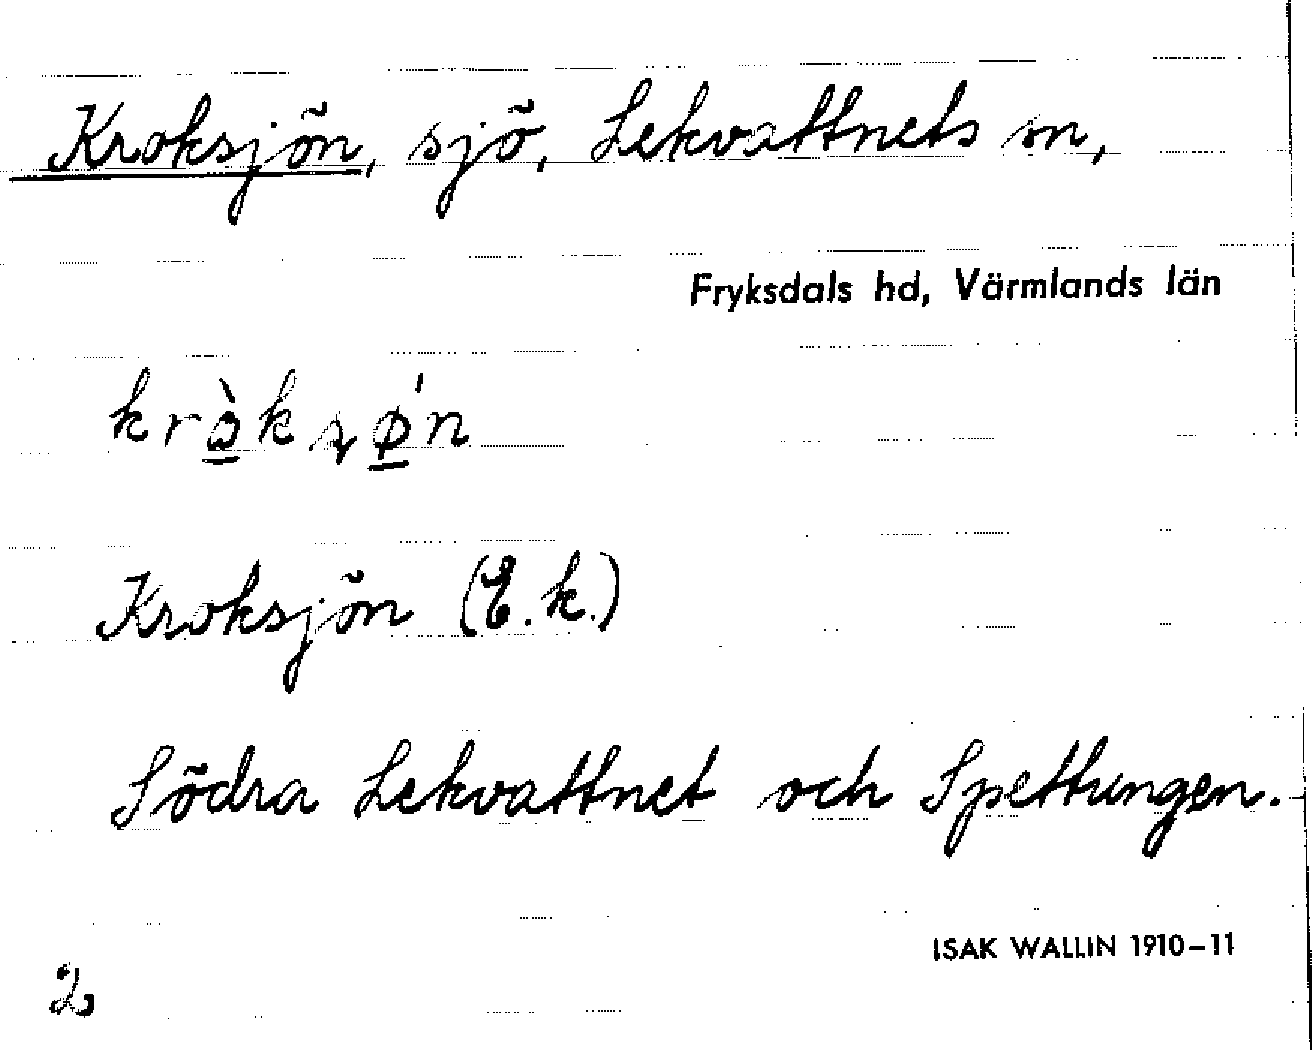 Kroksjön, sjö, Lekvattnets sn,
Fryksdals hd, Värmlands län
Kroksjön (E.k.)
Södra Lekvattnet och Spettungen.
ISAK WALLIN 1910–11
2